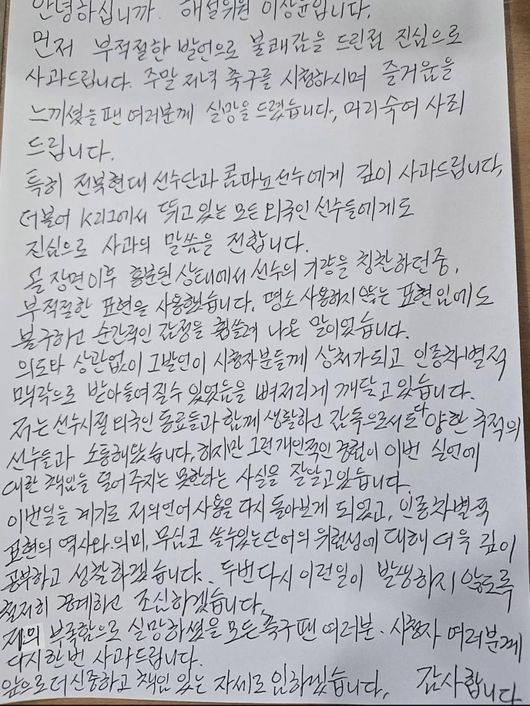 안녕하십니까. 해설위원 이상윤입니다.
먼저 부적절한 발언으로 불쾌감을 드린점 진심으로
사과드립니다. 주말 저녁 축구를 시청하시며 즐거움을
느끼셨을 팬 여러분께 실망을 드렸습니다. 머리숙여 사죄
드립니다.
특히 전북현대 선수단과 콤파뇨선수에게 깊이 사과드립니다.
더불어 K리그에서 뛰고 있는 모든 외국인 선수들에게도
진심으로 사과의 말씀을 전합니다.
골 장면이후 흥분된 상태에서 선수의 기량을 칭찬하던중,
부적절한 표현을 사용했습니다. 평소 사용하지 않는 표현임에도
불구하고 순간적인 감정을 휩쓸려 나온 말이었습니다.
의도와 상관없이 그발언이 시청자분들께 상처가되고 인종차별적
맥락으로 받아들여질수 있었음을 뼈저리게 깨닫고 있습니다.
저는 선수시절 외국인 동료들과 함께 생활하고 감독으로서도 다양한 국적의
선수들과 소통해왔습니다. 하지만 그런 개인적인 경험이 이번 실언에
대한 책임을 덜어 주지는 못한다는 사실을 잘알고있습니다.
이번일을 계기로 저의언어 사용을 다시 돌아보게 되었고, 인종차별적
표현의 역사와 의미, 무심코 쓸수있는단어의 위험성에 대해 더욱 깊이
공부하고 성찰하겠습니다. 두번다시 이런일이 발생하지 않도록
철저히 경계하고 조심하겠습니다.
저의 불찰함으로 실망하셨을 모든 축구팬 여러분. 시청자 여러분께
다시한번 사과드립니다.
앞으로 더 신중하고 책임 있는 자세로 임하겠습니다. 감사합니다